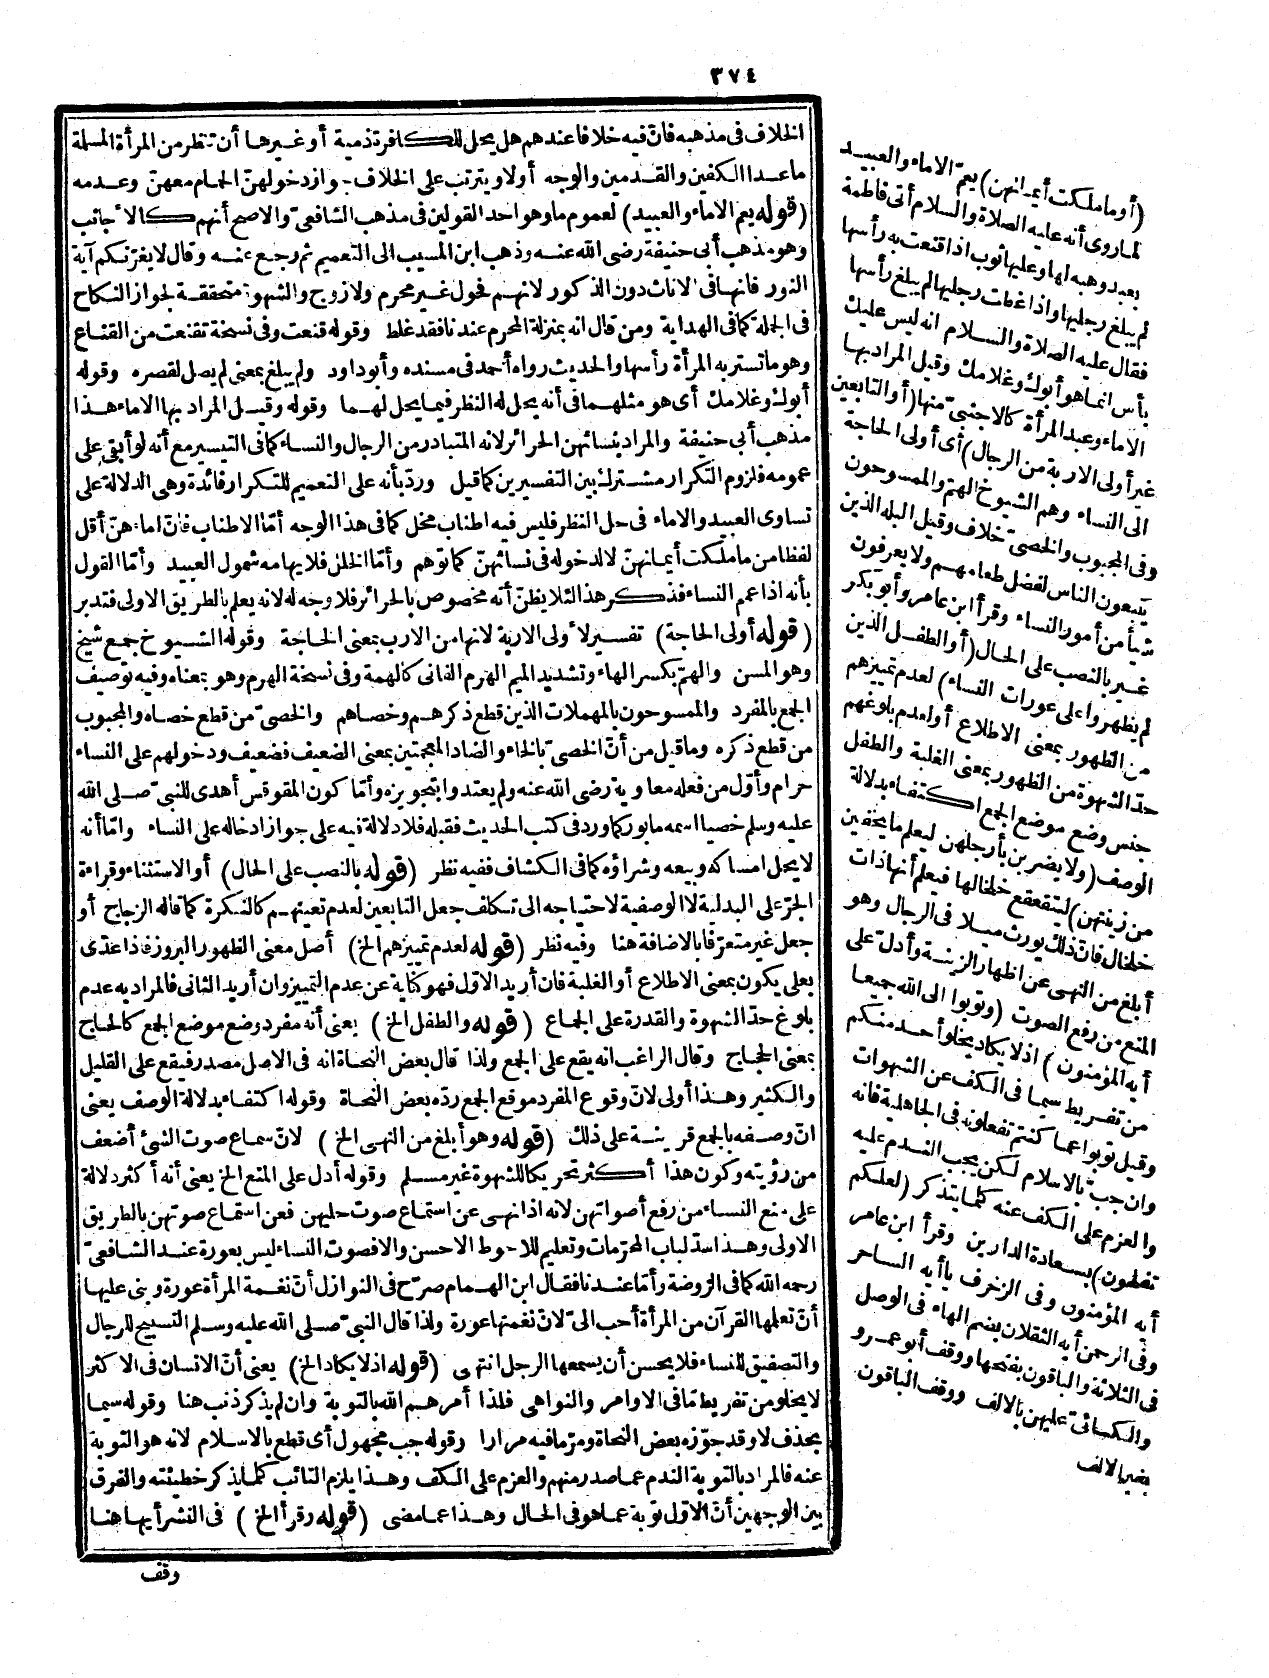 ٣٧٤
الخلاف في مذهبه فانّ فيه خلافا عندهم هل يحل للكافرة ذمية أو غيرها أن تنظر من المرأة المسلمة
ما عدا الكفين والقدمين والوجه أولا ويترتب على الخلاف جواز دخولهنّ الحمام معهنّ وعدمه
(قوله يعم الاماء والعبيد) لعموم ما وهو احد القولين في مذهب الشافعيّ والاصح أنهم كالأجانب
وهو مذهب أبي حنيفة رضى الله عنه وذهب ابن المسيب الى التعميم ثم رجع عنه وقال لا يغرّنكم آية
النور فانها في الاناث دون الذكور لانهم فحول غير محرم ولا زوج والشهوة متحققة لجواز النكاح
في الجملة كما في الهداية ومن قال انه بمنزلة المحرم عندنا فقد غلط وقوله قنعت وفي نسخة تقنعت من القناع
وهو ما تستر به المرأة رأسها والحديث رواه أحمد في مسنده وأبو داود ولم يبلغ بمعنى لم يصل لقصره وقوله
أبوك وغلامك أى هو مثلهما في أنه يحل له النظر فيما يحل لهما وقوله وقيل المراد بها الاماء هذا
مذهب أبي حنيفة والمراد بنسائهن الحرائر لانه المتبادر من الرجال والنساء كما في التيسير مع أنه لو أبقى على
عمومه فلزوم التكرار مشترك بين التفسيرين كما قيل وردّ بأنه على التعميم للتكرار فائدة وهى الدلالة على
تساوى العبيد والاماء في حل النظر فليس فيه اطناب مخل كما في هذا الوجه أمّا الاطناب فانّ اماءهنّ أقل
لفظا من ما ملكت أيمانهنّ لا لدخوله في نسائهنّ كما توهم وأمّا الخلل فلايهامه شمول العبيد وأمّا القول
بأنه اذا عم النساء فذكر هذا لئلا يظنّ أنه مخصوص بالحرائر فلا وجه له لانه يعلم بالطريق الاولى فتدبر
(قوله أولى الحاجة) تفسير لأولى الاربة لانها من الارب بمعنى الحاجة وقوله الشيوخ جمع شيخ
وهو المسن والهمّ بكسر الهاء وتشديد الميم الهرم الفانى كالهمة وفي نسخة الهرم وهو بمعناه وفيه توصيف
الجمع بالمفرد والممسوحون بالمهملات الذين قطع ذكرهم وخصاهم والخصىّ من قطع خصاه والمجبوب
من قطع ذكره وما قيل من أنّ الخصىّ بالخاء والضاد المعجمتين بمعنى الضعيف فضعيف ودخولهم على النساء
حرام وأوّل من فعله معاوية رضى الله عنه ولم يعتدوا بتجويزه وأمّا كون المقوقس أهدى للنبىّ صلى الله
عليه وسلم خصيا اسمه مابور كما ورد في كتب الحديث فقبله فلا دلالة فيه على جواز ادخاله على النساء وامّا أنه
لا يحل امساكه وبيعه وشراؤه كما في الكشاف ففيه نظر (قوله بالنصب على الحال) أو الاستثناء وقراءة
الجرّ على البدلية لا الوصفية لاحتياجه الى تكلف جعل التابعين لعدم تعينهم كالنكرة كما قاله الزجاج أو
جعل غير متعرّفا بالاضافة هنا وفيه نظر (قوله لعدم تمييزهم الخ) أصل معنى الظهور البروز فاذا عدّى
بعلى يكون بمعنى الاطلاع أو الغلبة فان أريد الاول فهو كناية عن عدم التمييز وان أريد الثانى فالمراد به عدم
بلوغ حدّ الشهوة والقدرة على الجماع (قوله والطفل الخ) يعنى أنه مفرد وضع موضع الجمع كالحاج
بمعنى الحجاج وقال الراغب انه يقع على الجمع ولذا قال بعض النحاة انه في الاصل مصدر فيقع على القليل
والكثير وهذا أولى لانّ وقوع المفرد موقع الجمع ردّه بعض النحاة وقوله اكتفاء بدلالة الوصف يعنى
انّ وصفه بالجمع قرينة على ذلك (قوله وهو أبلغ من النهى الخ) لانّ سماع صوت الشئ أضعف
من رؤيته وكون هذا أكثر تحريكا للشهوة غير مسلم وقوله أدل على المنع الخ يعنى أنه أكثر دلالة
على منع النساء من رفع أصواتهن لانه اذا نهى عن استماع صوت حليهن فعن استماع صوتهن بالطريق
الاولى وهذا سدّ لباب المحرّمات وتعليم للاحوط الاحسن والا فصوت النساء ليس بعورة عند الشافعىّ
رحمه الله كما في الروضة وأمّا عندنا فقال ابن الهمام صرّح في النوازل أنّ نغمة المرأة عورة وبنى عليها
أنّ تعلمها القرآن من المرأة أحب الىّ لانّ نغمتها عورة ولذا قال النبىّ صلى الله عليه وسلم التسبيح للرجال
والتصفيق للنساء فلا يحسن أن يسمعها الرجل انتهى (قوله اذ لا يكاد الخ) يعنى أنّ الانسان في الاكثر
لا يخلو من تفريط مّا في الاوامر والنواهى فلذا أمرهم الله بالتوبة وان لم يذكر ذنب هنا وقوله سيما
بحذف لا وقد جوّزه بعض النحاة ومرّ ما فيه مرارا وقوله جب مجهول أى قطع بالاسلام لانه هو التوبة
عنه فالمراد بالتوبة الندم عما صدر منهم والعزم على الكف وهذا يلزم التائب كلما يذكر خطيئته والفرق
بين الوجهين أنّ الاوّل توبة عما هو في الحال وهذا عما مضى (قوله وقرأ الخ) في النشر أيها هنا
وقف
(أو ما ملكت أيمانهن) يعمّ الاماء والعبيد
لما روى أنه عليه الصلاة والسلام أتى فاطمة
بعبد وهبه لها وعليها ثوب اذا قنعت به رأسها
لم يبلغ رجليها واذا غطت رجليها لم يبلغ رأسها
فقال عليه الصلاة والسلام انه ليس عليك
بأس انما هو أبوك وغلامك وقيل المراد بها
الاماء وعبد المرأة كالاجنبىّ منها (أو التابعين
غير أولى الاربة من الرجال) أى أولى الحاجة
الى النساء وهم الشيوخ الهمّ والممسوحون
وفى المجبوب والخصىّ خلاف وقيل البله الذين
يتبعون الناس لفضل طعامهم ولا يعرفون
شيأ من أمور النساء وقرأ ابن عامر وأبو بكر
غير بالنصب على الحال (أو الطفل الذين
لم يظهروا على عورات النساء) لعدم تمييزهم
من الظهور بمعنى الاطلاع أو لعدم بلوغهم
حدّ الشهوة من الظهور بمعنى الغلبة والطفل
جنس وضع موضع الجمع اكتفاء بدلالة
الوصف (ولا يضربن بأرجلهن ليعلم ما يخفين
من زينتهن) ليتقعقع خلخالها فيعلم أنها ذات
خلخال فانّ ذلك يورث ميلا في الرجال وهو
أبلغ من النهى عن اظهار الزينة وأدلّ على
المنع من رفع الصوت (وتوبوا الى الله جميعا
أيه المؤمنون) اذ لا يكاد يخلو أحد منكم
من تفريط سيما في الكف عن الشهوات
وقيل توبوا عما كنتم تفعلونه في الجاهلية فانه
وان جبّ بالاسلام لكن يجب الندم عليه
والعزم على الكف عنه كلما يتذكر (لعلكم
تفلحون) بسعادة الدارين وقرأ ابن عامر
أيه المؤمنون وفى الزخرف ياأيه الساحر
وفى الرحمن أيه الثقلان بضم الهاء في الوصل
فى الثلاثة والباقون بفتحها ووقف أبو عمرو
والكسائىّ عليهن بالالف ووقف الباقون
بغير الالف